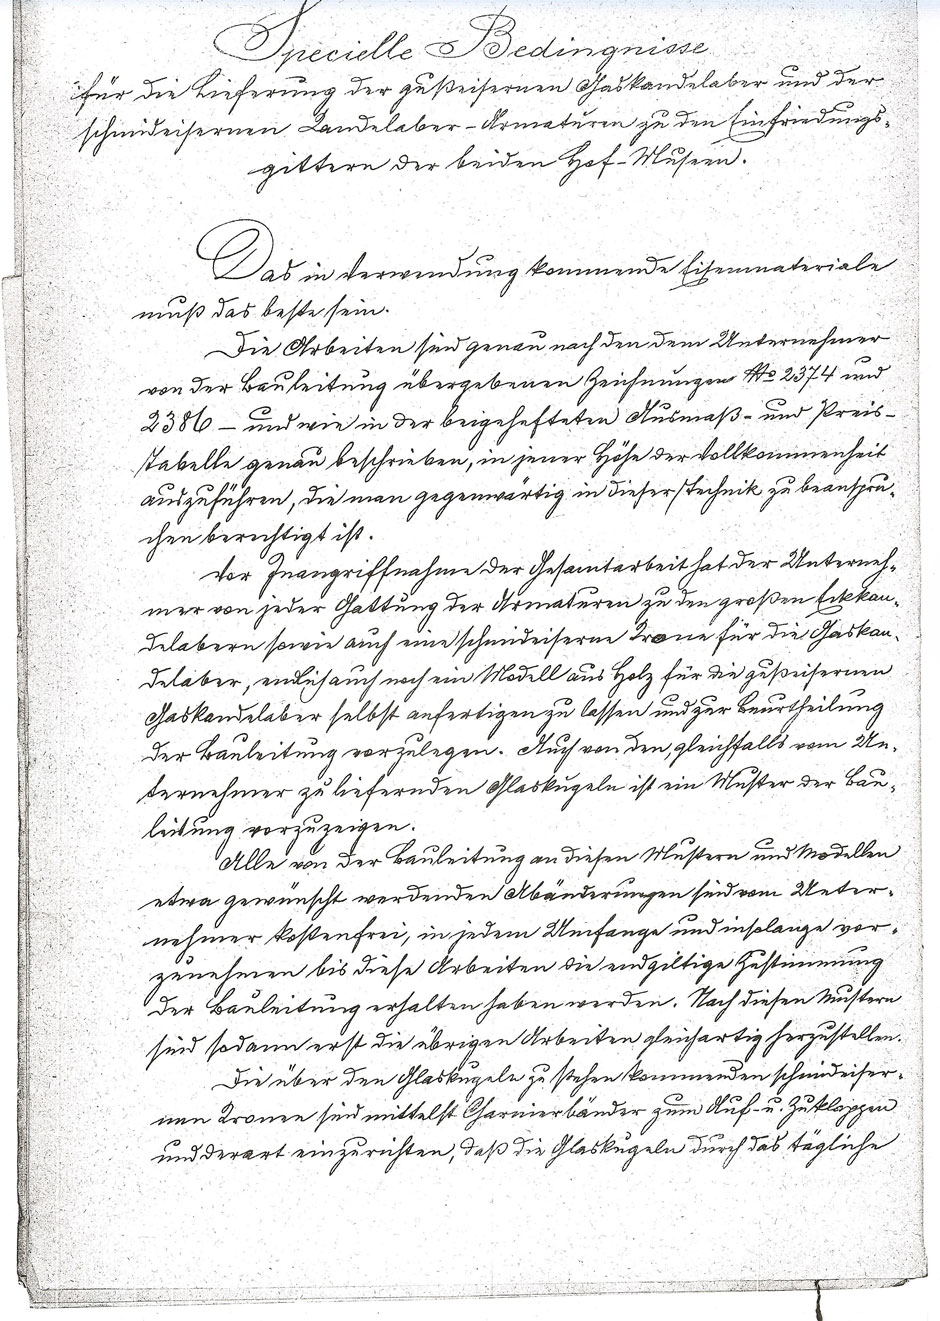 Specielle Bedingnisse
für die Lieferung der gußeisernen Gaskandelaber und der
schmideisernen Kandelaber-Armaturen zu den Einfriedungs-
gittern der beiden Hof-Museen.
Das in Verwendung kommende Eisenmateriale
muß das beste sein.
Die Arbeiten sind genau nach den dem Unternehmer
von der Bauleitung übergebenen Zeichnungen No 2374 und
2386 – und wie in der beigehefteten Ausmaß- und Preis-
tabelle genau beschrieben, in jener Höhe der Vollkommenheit
auszuführen, die man gegenwärtig in dieser Technik zu beanspru-
chen berechtigt ist.
Vor Inangriffnahme der Gesamtarbeit hat der Unterneh-
mer von jeder Gattung der Armaturen zu den großen Eckkan-
delabern sowie auch eine schmideiserne Krone für die Gaskan-
delaber, endlich auch noch ein Modell aus Holz für die gußeisernen
Gaskandelaber selbst anfertigen zu lassen und zur Beurtheilung
der Bauleitung vorzulegen. Auch von den, gleichfalls vom Un-
ternehmer zu liefernden Glaskugeln ist ein Muster der Bau-
leitung vorzuzeigen.
Alle von der Bauleitung an diesen Mustern und Modellen
etwa gewünscht werdenden Abänderungen sind vom Unter-
nehmer kostenfrei, in jedem Umfange und insolange vor-
zunehmen bis diese Arbeiten die endgiltige Zustimmung
der Bauleitung erhalten haben werden. Nach diesen Mustern
sind sodann erst die übrigen Arbeiten gleichartig herzustellen.
Die über den Glaskugeln zu stehen kommenden schmideiser-
nen Kronen sind mittelst Charnierbänder zum Auf- u. Zuklappen
und derart einzurichten, daß die Glaskugeln durch das tägliche